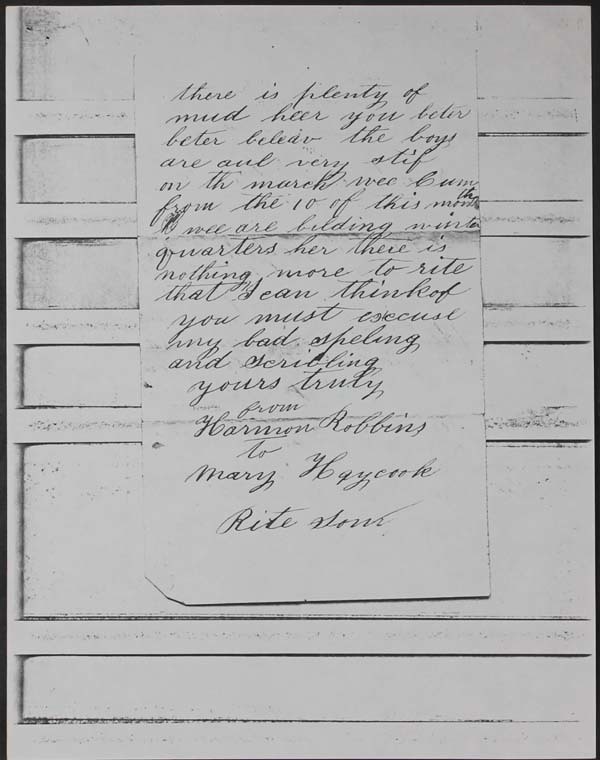 there is plenty of
mud heer you beter
beter beleav the boys
are aul very stif
on th march wee Cum
from the 10 of this month
wee are bilding winter
quarters her there is
nothing more to rite
that I can think of
you must exccuse
my bad speling
and scribling
yours truly
from
Harmon Robbins
to
Mary Haycook
Rite soon